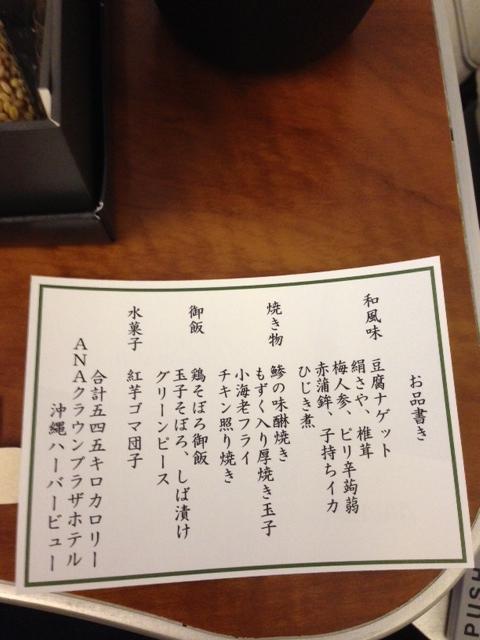 お品書き
和風味　豆腐ナゲット
絹さや、椎茸
梅人参、ピリ辛蒟蒻
赤蒲鉾、子持ちイカ
ひじき煮
焼き物　鯵の味醂焼き
もずく入り厚焼き玉子
小海老フライ
チキン照り焼き
御飯　鶏そぼろ御飯
玉子そぼろ、しば漬け
グリーンピース
水菓子　紅芋ゴマ団子
合計五四五キロカロリー
ANAクラウンプラザホテル
沖縄ハーバービュー
PUSH